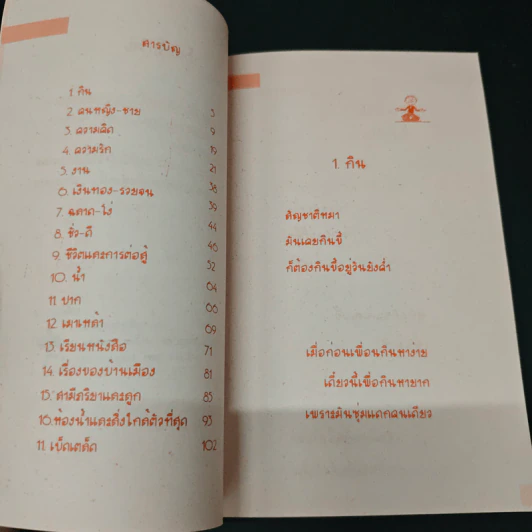 สารบัญ
1. กิน
2. คนหญิง-ชาย 5
3. ความคิด 9
4. ความรัก 19
5. งาน 21
6. เงินทอง-รวยจน 38
7. ฉลาด-โง่ 39
8. ชั่ว-ดี 44
9. ชีวิตและการต่อสู้ 46
10. น้ำ 52
11. ปาก 64
12. 66
13. เรียนหนังสือ 69
14. เรื่องของบ้านเมือง 71
15. สามีภริยาและลูก 81
16. ห้องน้ำและสิ่งใกล้ตัวที่สุด 85
11. เบ็ดเตล็ด 93
102
1. กิน
สัญชาติหมา
มันเคยกินขี้
ก็ต้องกินขี้อยู่วันยังค่ำ
เมื่อก่อนเพื่อนกินหาง่าย
เดี๋ยวนี้เพื่อกินหายาก
เพราะมันซุ่มแดกคนเดียว